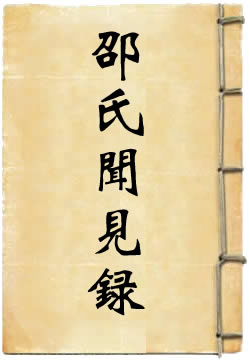 邵氏聞見録